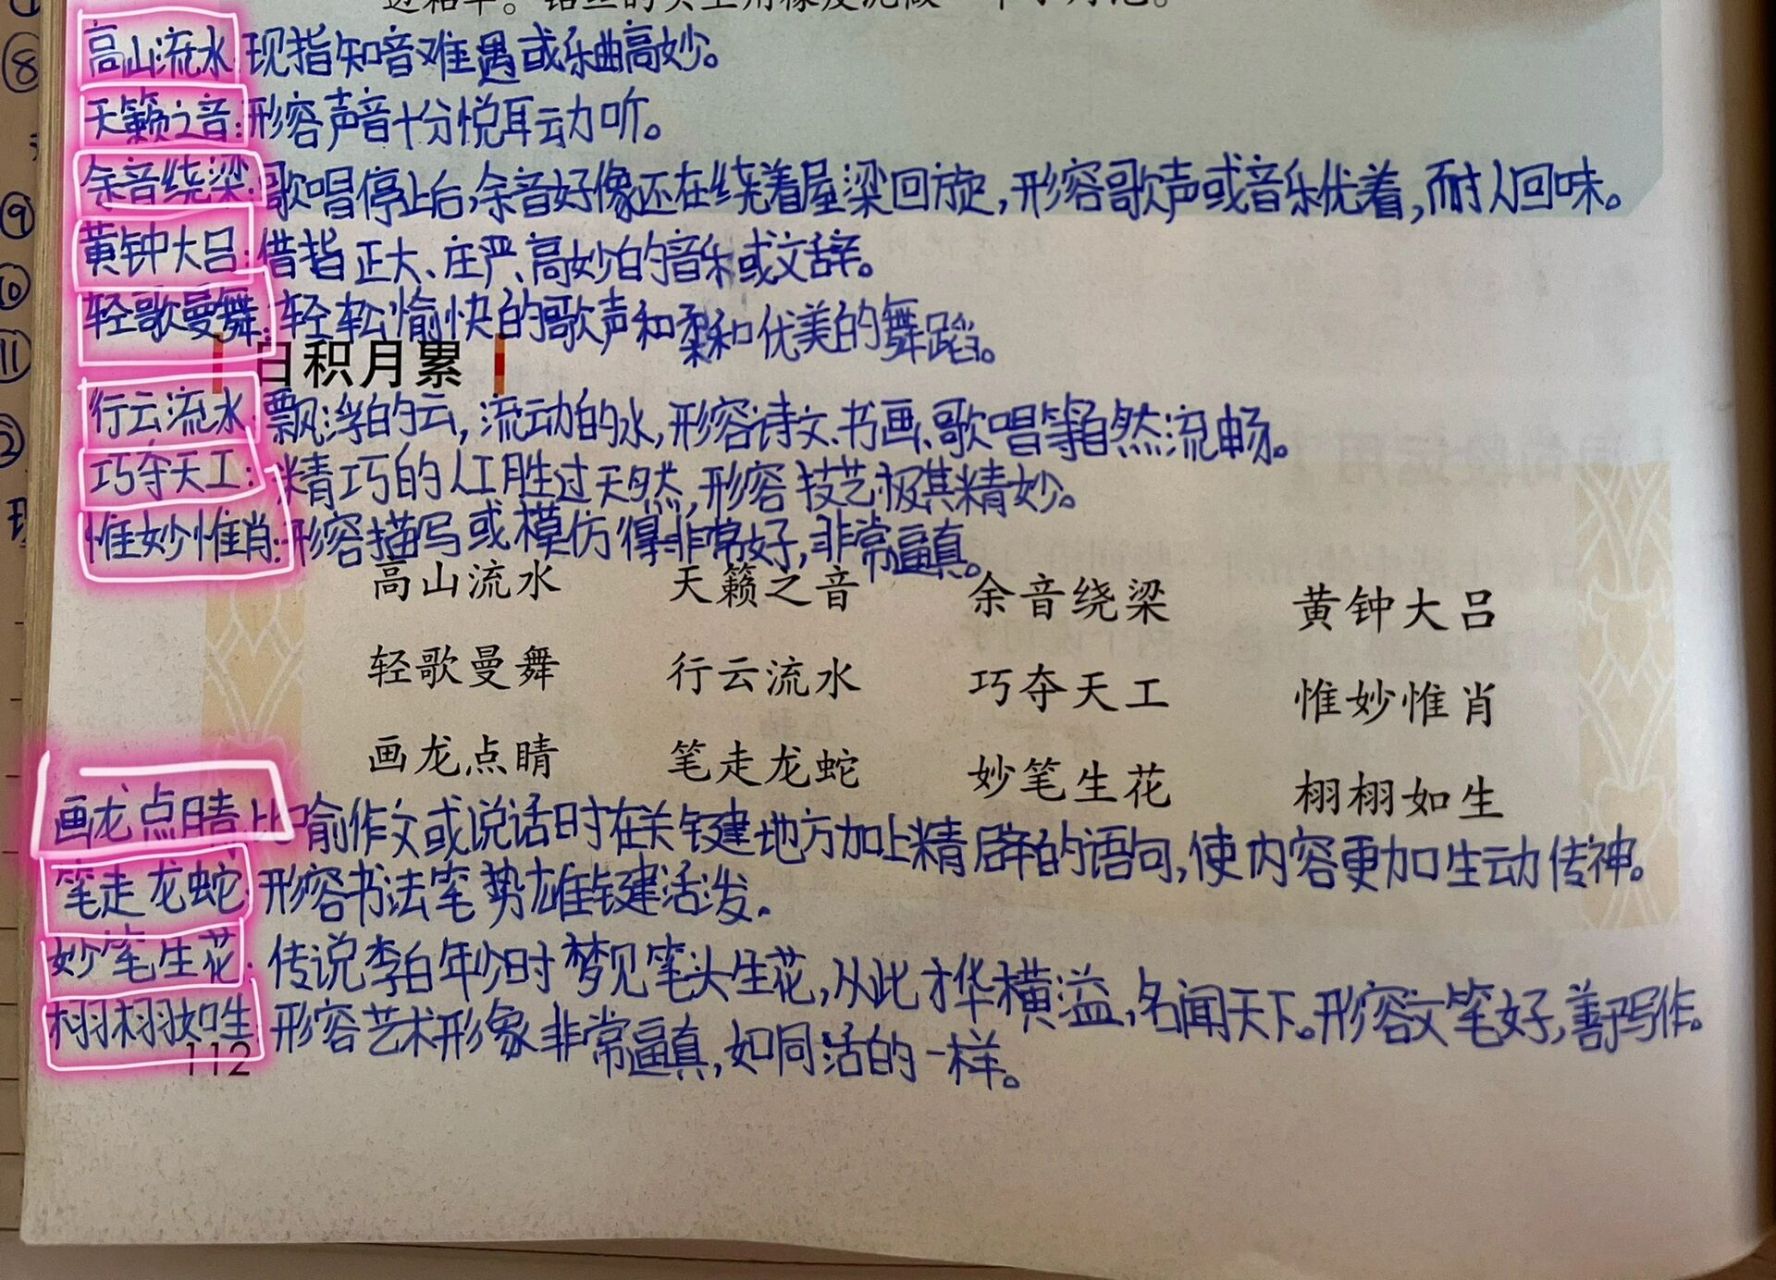 ⑧
高山流水:现指知音难遇或乐曲高妙。
天籁之音:形容声音十分悦耳动听。
余音绕梁:歌唱停止后,余音好像还在绕着屋梁回旋,形容歌声或音乐优着,耐人回味。
⑨
黄钟大吕:借指正大、庄严、高妙的音乐或文辞。
⑩
轻歌曼舞:轻松愉快的歌声和柔和优美的舞蹈。
⑪
日积月累
行云流水:飘浮的云,流动的水,形容诗文、书画、歌唱等自然流畅。
巧夺天工:精巧的人工胜过天然,形容技艺极其精妙。
惟妙惟肖:形容描写或模仿得非常好,非常逼真。
高山流水 天籁之音 余音绕梁 黄钟大吕
轻歌曼舞 行云流水 巧夺天工 惟妙惟肖
画龙点睛 笔走龙蛇 妙笔生花 栩栩如生
画龙点睛:比喻作文或说话时在关键地方加上精辟的语句,使内容更加生动传神。
笔走龙蛇:形容书法笔势雄健活泼.
妙笔生花:传说李白年少时梦见笔头生花,从此才华横溢,名闻天下。形容文笔好,善于写作。
栩栩如生:形容艺术形象非常逼真,如同活的一样。
112